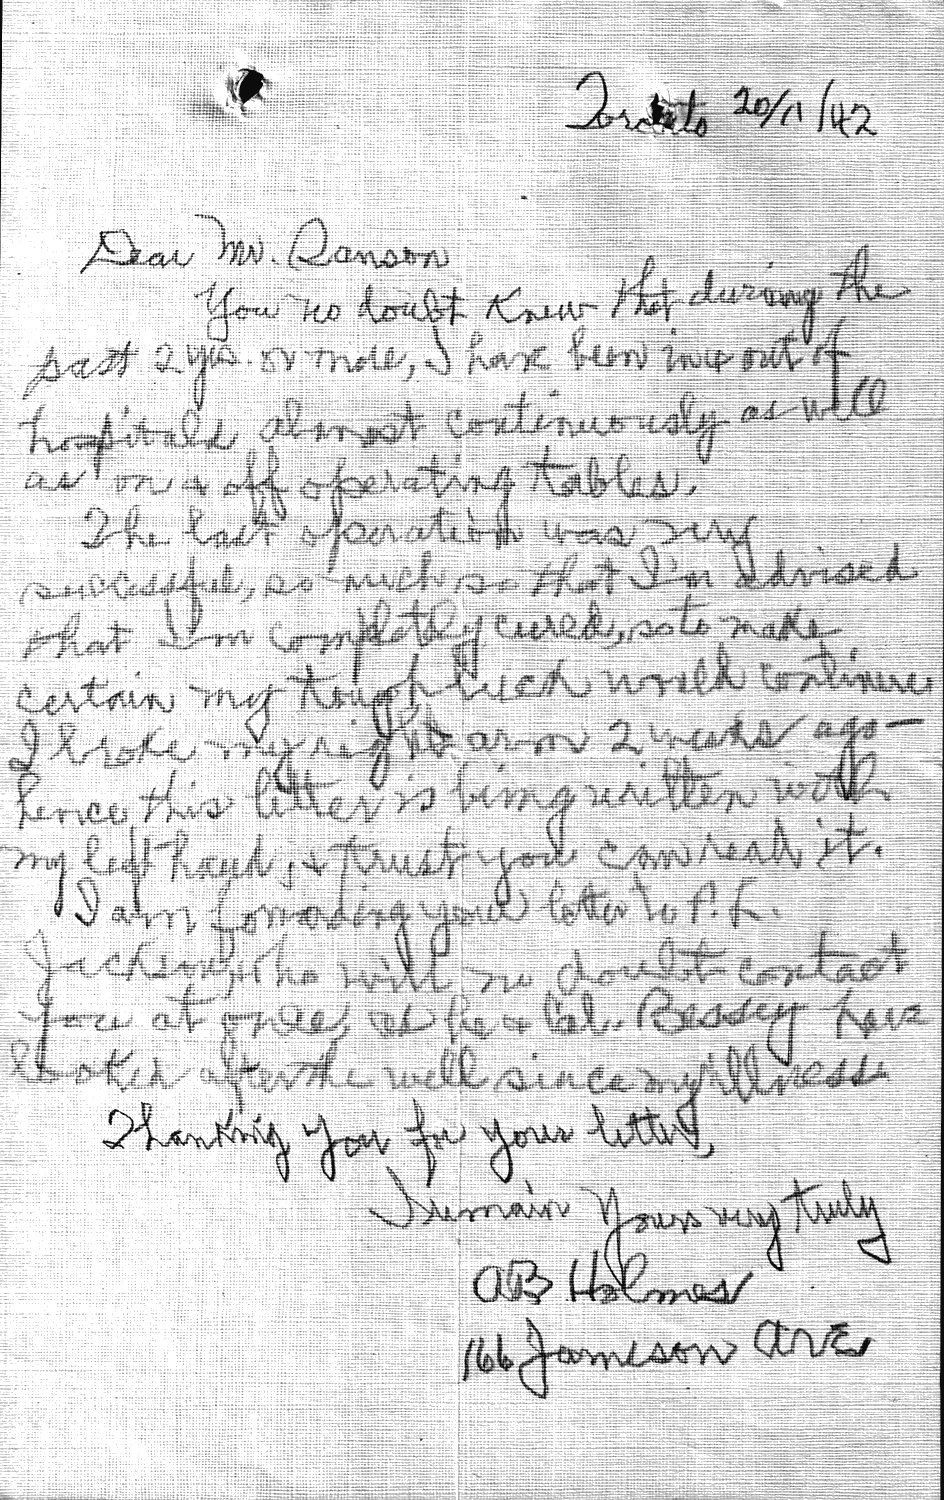 Toronto 20/1/42
Dear Mr. Ranson
You no doubt knew that during the
past 2 yrs. or more, I have been in & out of
hospitals almost continuously as well
as on & off operating tables.
The last operation was very
successful, so much so that I'm advised
that I'm completely cured, so to make
certain my tough luck would continue
I broke my right arm 2 weeks ago —
hence this letter is being written with
my left hand, & trust you can read it.
I am forwarding your letter to P. L.
Jackson, who will no doubt contact
you at once, as he & Col. Bessey have
looked after the well since my illness
Thanking you for your letter,
I remain Yours very truly
AB Holmes
166 Jameson AVE.